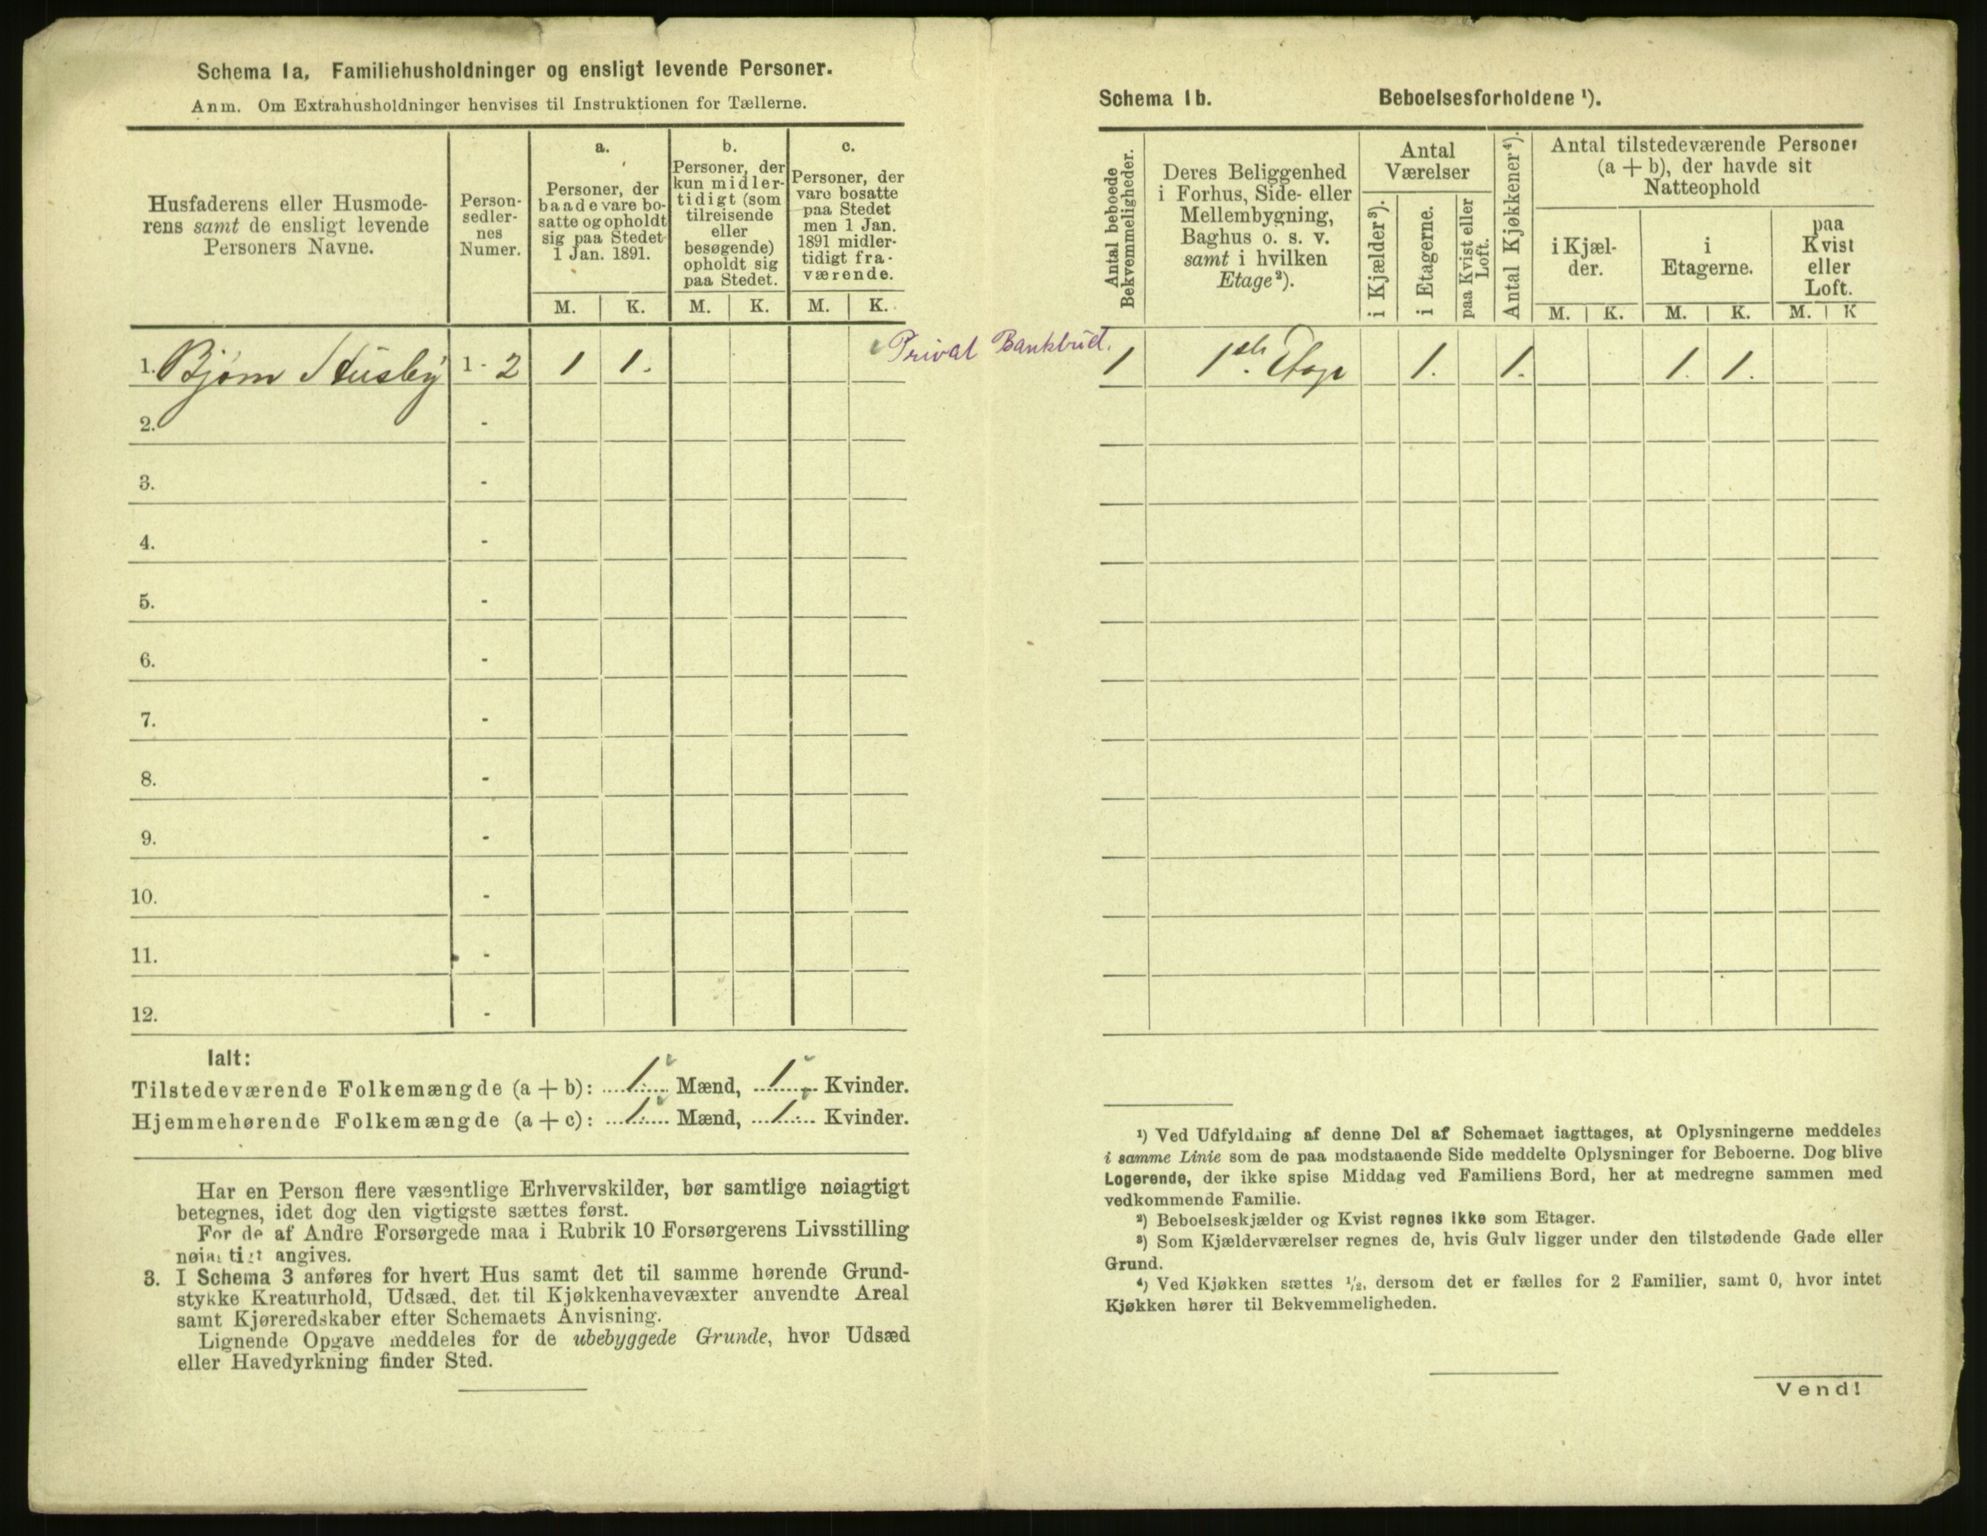 Schema 1a, Familiehusholdninger og ensligt levende Personer.
Anm. Om Extrahusholdninger henvises til Instruktionen for Tællerne.
Husfaderens eller Husmode-
rens samt de ensligt levende
Personers Navne.
Person-
sedler-
nes
Numer.
a.
Personer, der
baade vare bo-
satte og opholdt
sig paa Stedet
1 Jan. 1891.
b.
Personer, der
kun midler-
tidigt (som
tilreisende
eller
besøgende)
opholdt sig
paa Stedet.
c.
Personer, der
vare bosatte
paa Stedet
men 1 Jan.
1891 midler-
tidigt fra-
værende.
M. K. M. K. M. K.
1. Bjørn Husby 1 - 2 1 1. Privat Bankbud.
2. -
3. -
4. -
5. -
6. -
7. -
8. -
9. -
10. -
11. -
12. -
Ialt:
Tilstedeværende Folkemængde (a + b): 1. Mænd, 1. Kvinder.
Hjemmehørende Folkemængde (a + c): 1. Mænd, 1. Kvinder.
Har en Person flere væsentlige Erhvervskilder, bør samtlige nøiagtigt
betegnes, idet dog den vigtigste sættes først.
For de af Andre Forsørgede maa i Rubrik 10 Forsørgerens Livsstilling
nøiagtigt angives.
3. I Schema 3 anføres for hvert Hus samt det til samme hørende Grund-
stykke Kreaturhold, Udsæd, det til Kjøkkenhavevæxter anvendte Areal
samt Kjøreredskaber efter Schemaets Anvisning.
Lignende Opgave meddeles for de ubebyggede Grunde, hvor Udsæd
eller Havedyrkning finder Sted.
Schema 1b. Beboelsesforholdene ¹).
Antal beboede
Bekvemmeligheder.
Deres Beliggenhed
i Forhus, Side- eller
Mellembygning,
Baghus o. s. v.
samt i hvilken
Etage²).
Antal
Værelser
i Kjælder³).
i Etagerne.
paa Kvist eller
Loft.
Antal Kjøkkener⁴).
Antal tilstedeværende Personer
(a + b), der havde sit
Natteophold
i Kjæl-
der.
i
Etagerne.
paa
Kvist
eller
Loft.
M. K. M. K. M. K
1 1ste Etage 1. 1. 1. 1.
¹) Ved Udfyldning af denne Del af Schemaet iagttages, at Oplysningerne meddeles
i samme Linie som de paa modstaaende Side meddelte Oplysninger for Beboerne. Dog blive
Logerende, der ikke spise Middag ved Familiens Bord, her at medregne sammen med
vedkommende Familie.
²) Beboelseskjælder og Kvist regnes ikke som Etager.
³) Som Kjælderværelser regnes de, hvis Gulv ligger under den tilstødende Gade eller
Grund.
⁴) Ved Kjøkken sættes ½, dersom det er fælles for 2 Familier, samt 0, hvor intet
Kjøkken hører til Bekvemmeligheden.
Vend!